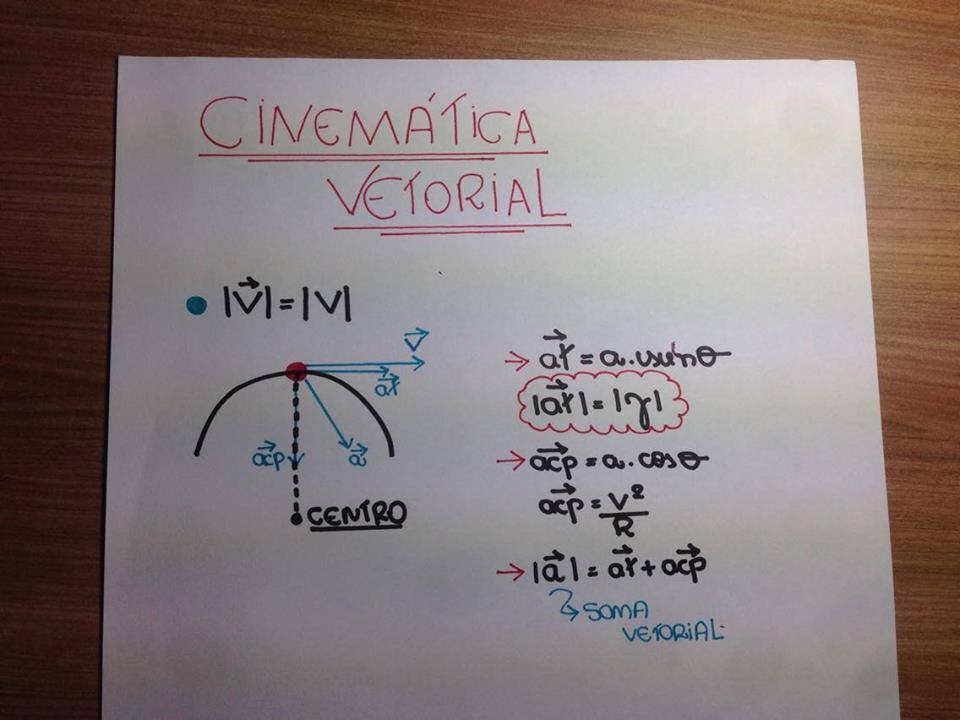 CINEMÁTICA
VETORIAL
|V⃗| = |V|
V⃗
at⃗
acp⃗
a⃗
CENTRO
at⃗ = a . senθ
|at⃗| = |γ|
acp⃗ = a . cosθ
acp⃗ = V²/R
|a⃗| = at⃗ + acp⃗
SOMA
VETORIAL.